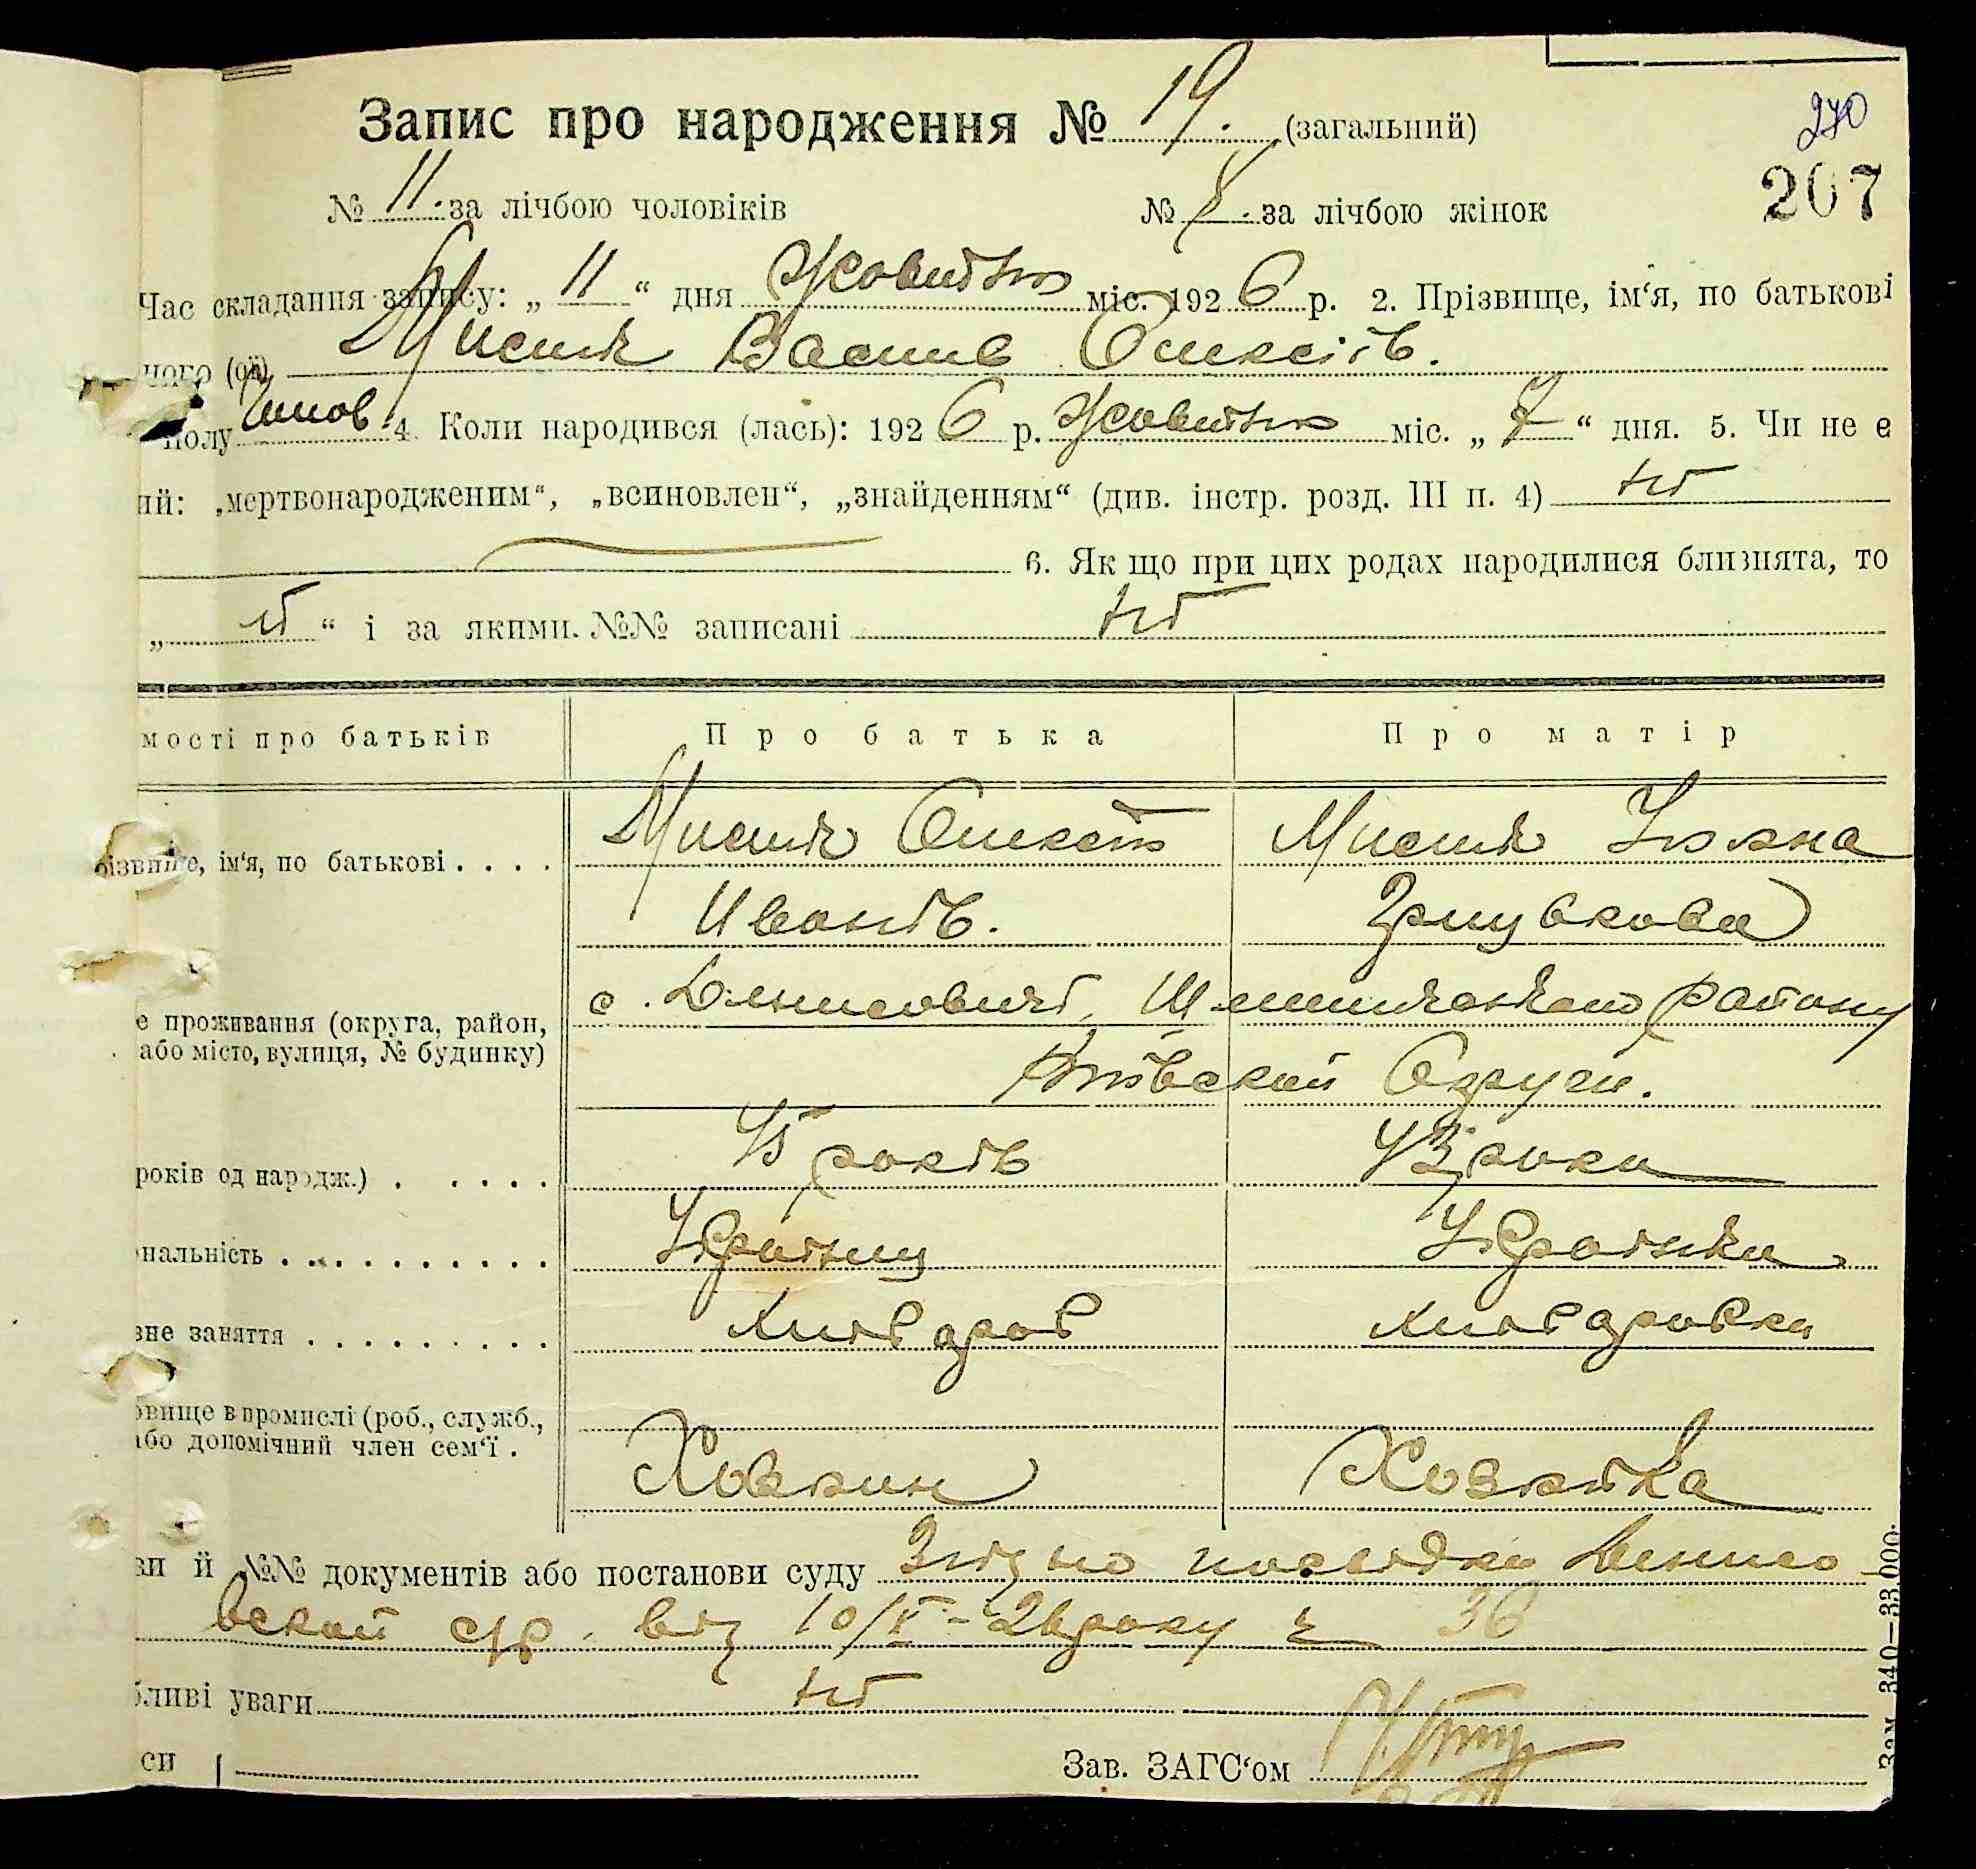 Запис про народження № 19. (загальний)
270
№ 11. за лічбою чоловіків № 8. за лічбою жінок
207
Час складання запису: „ 11 “ дня Жовтня міс. 1926 р. 2. Прізвище, ім‘я, по батькові
ного (ої) Мисик Василь Олексіїв.
полу Чолов 4. Коли народився (лась): 1926 р. Жовтня міс. „ 7 “ дня. 5. Чи не є
ий: „мертвонародженим“, „всиновлен“, „знайденням“ (див. інстр. розд. III п. 4) ні
6. Як що при цих родах народилися близнята, то
„ ні “ і за якими №№ записані ні
мості про батьків Про батька Про матір
різвище, ім‘я, по батькові . . . . Мисик Олексій Мисик Уляна
Иванів.
с. Денисовичі, району
е проживання (округа, район,
або місто, вулиця, № будинку)
Київської Округи.
років од народж.) . . . . . 45 років 43 роки
нальність . . . . . . . . . . Українець Українка
вне заняття . . . . . . . . . Хлібороб Хліборобка
овище в промислі (роб., служб.,
або допомічний член сем‘ї .
Хозяин Хозяйка
ви й №№ документів або постанови суду Згідно посвідки Денисо
вської с/р. від 10/X-26 року № 36
бливі уваги ні
си Зав. ЗАГС‘ом
Зам. 340—33.000.